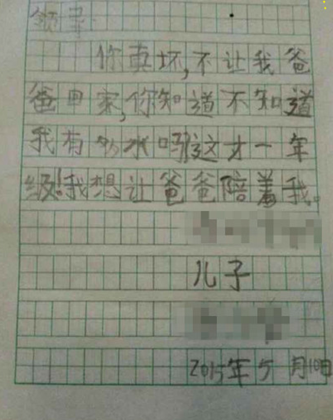 领导
你真坏,不让我爸
爸回家,你知道不知道
我有多水吗!这才一年
级!我想让爸爸陪着我。
儿子
2015年5月10日